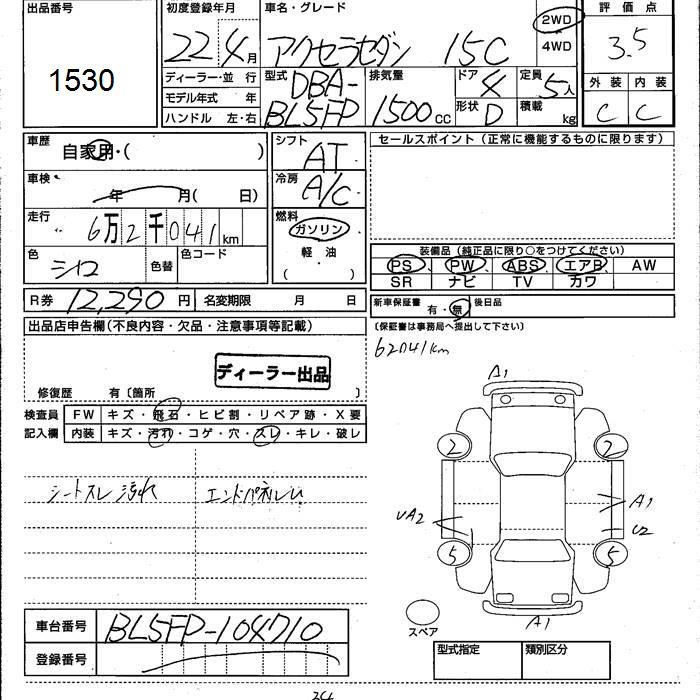 出品番号
1530
初度登録年月
22 4月
ディーラー・並 行
モデル年式 年
ハンドル 左・右
車名・グレード
アクセラセダン 15C
2WD
4WD
評価点
3.5
型式 DBA-
BL5FP
排気量
1500cc
ドア 4
形状 D
定員 5人
積載 kg
外装 内装
C C
車歴
自家用・( )
車検
年 月( 日)
走行
6万2千041km
色
シロ
色替
色コード
シフト
AT
冷房
A/C
燃料
ガソリン
軽・油
( )
セールスポイント(正常に機能するものに限ります)
装備品(純正品に限り○をつけてください)
PS PW ABS エアB AW
SR ナビ TV カワ
R券 12,290円 名変期限 月 日
新車保証書 有・無 後日品
(保証書は事務局へ提出して下さい)
62041km
出品店申告欄(不良内容・欠品・注意事項等記載)
ディーラー出品
修復歴 有〔箇所 〕
検査員 FW キズ・飛石・ヒビ割・リペア跡・X要
記入欄 内装 キズ・汚れ・コゲ・穴・スレ・キレ・破レ
シートスレ汚れ
エンドパネルU
A1
2 2
UA2
A1
U2
5 5
A1
スペア
車台番号 BL5FP-104710
登録番号
型式指定 類別区分